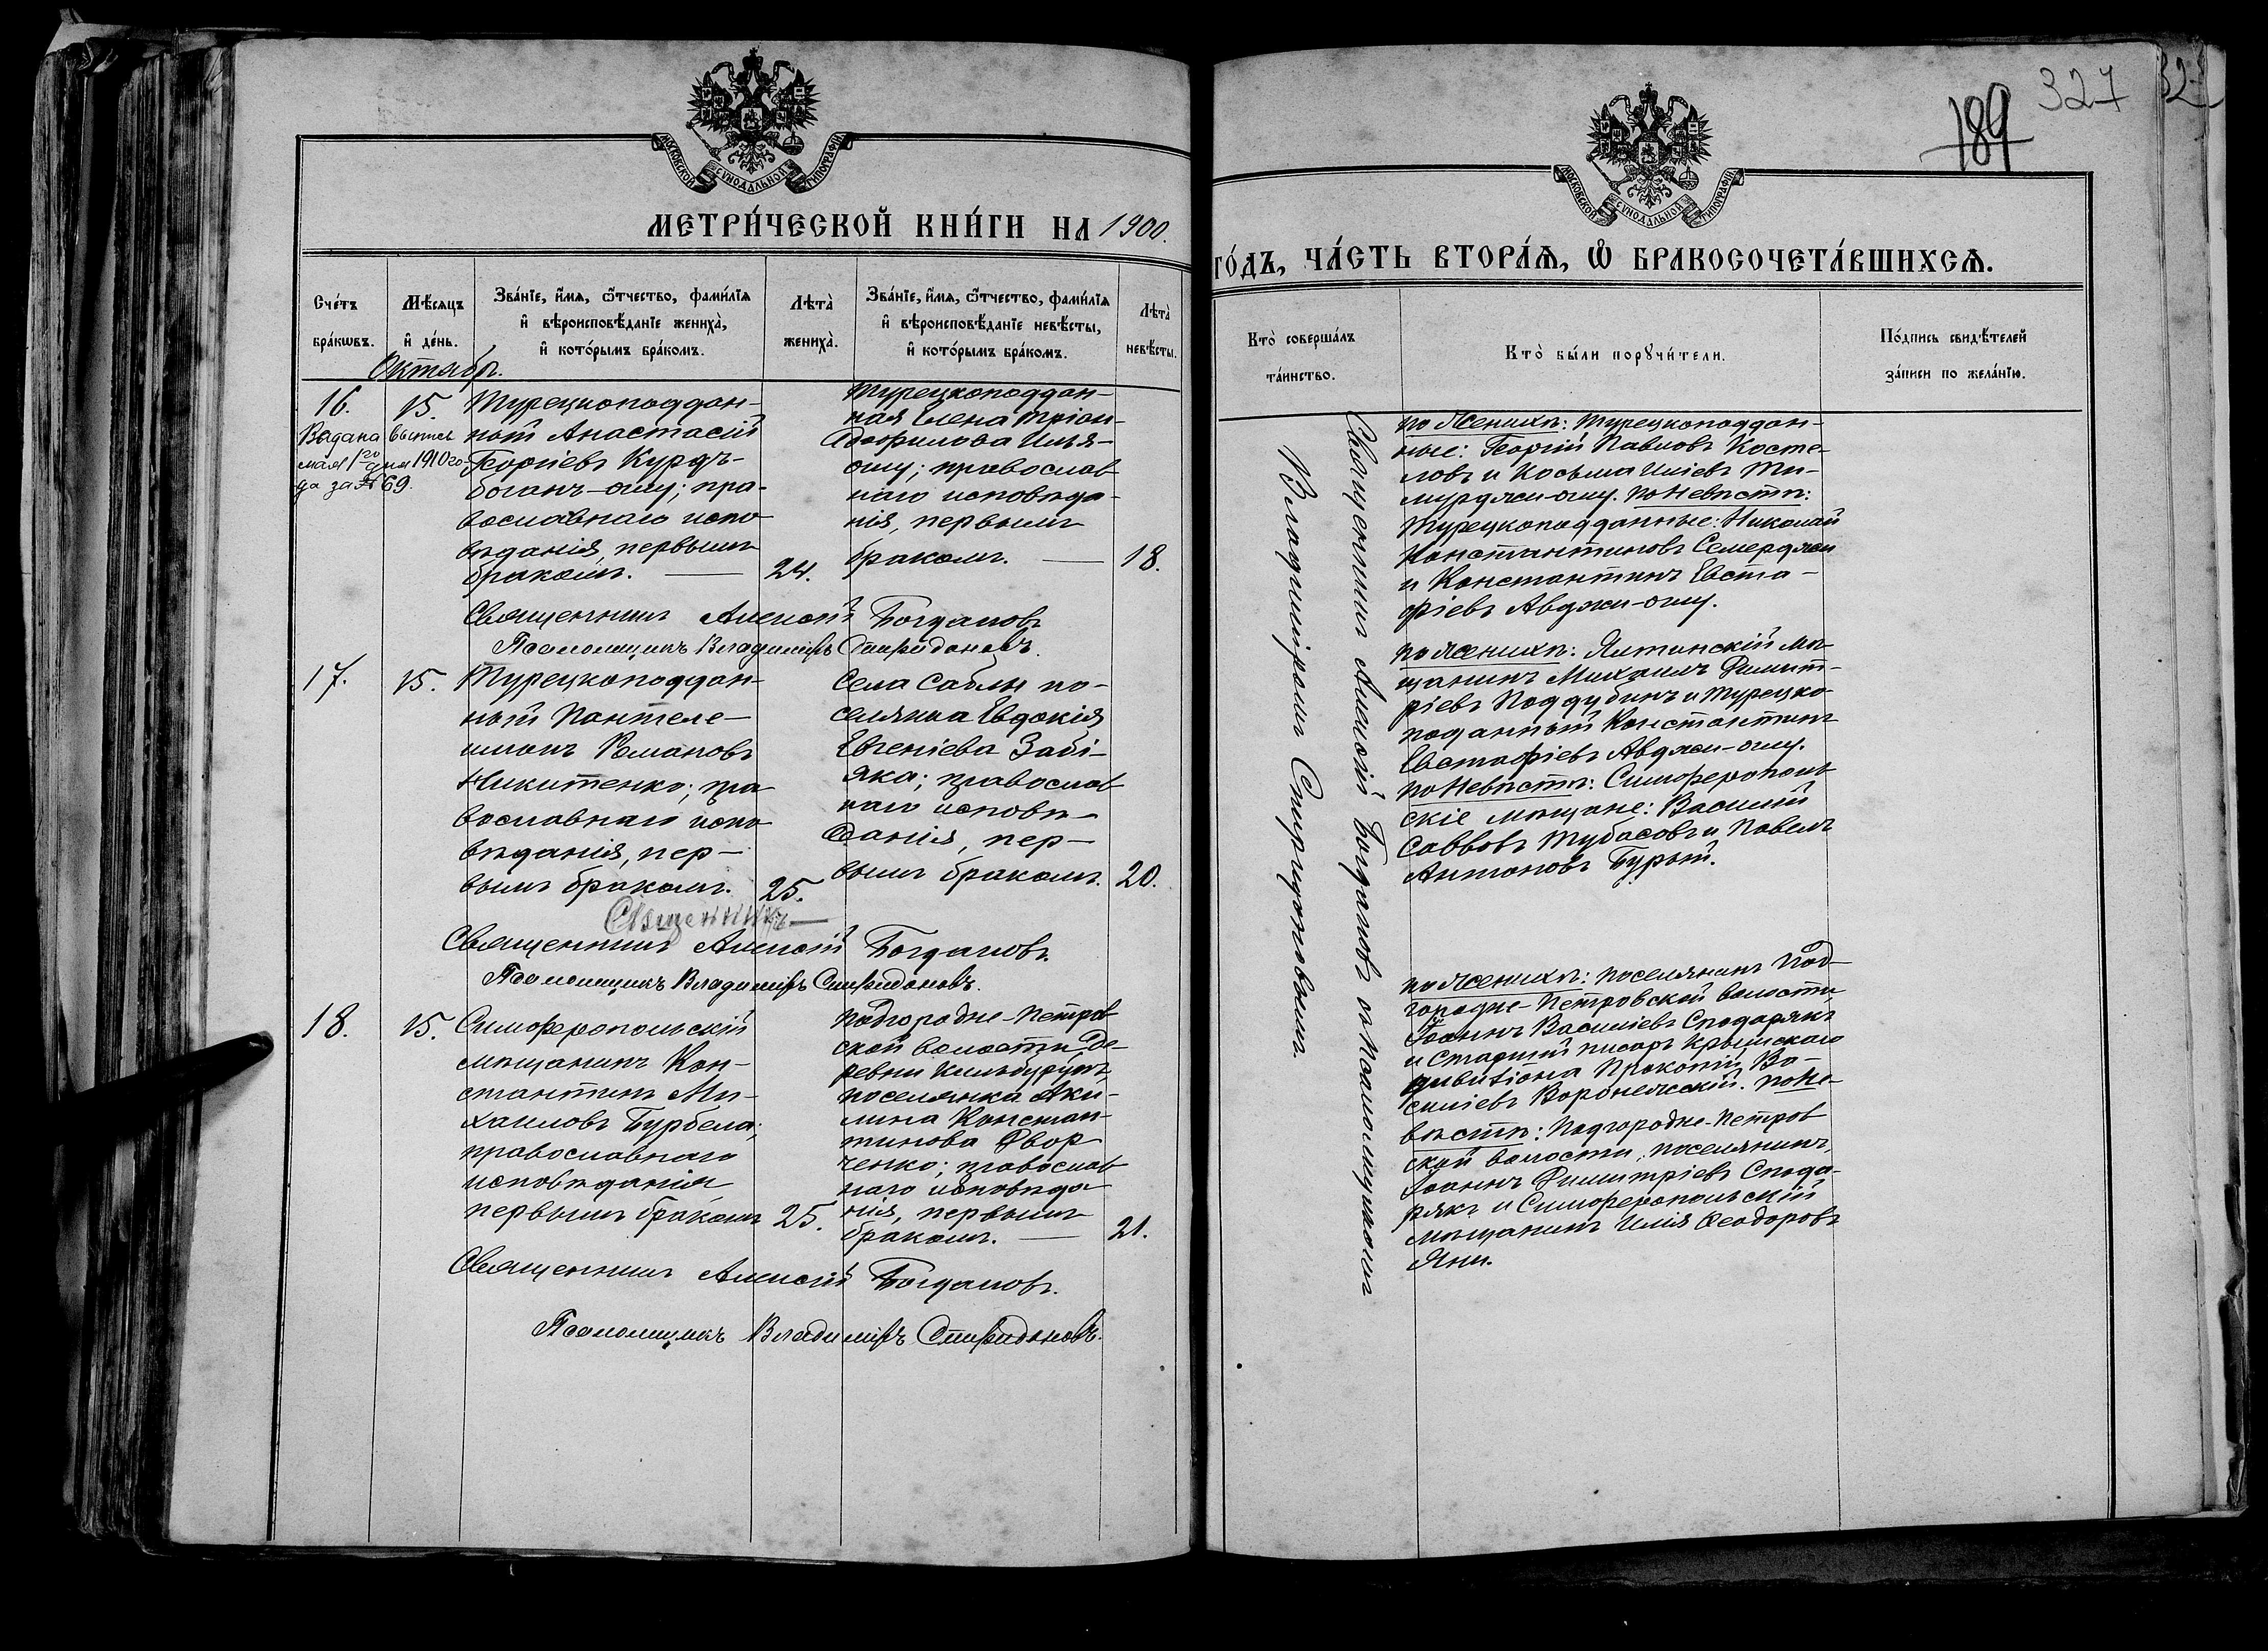 МОСКОВСКОЙ СѴНОДАЛЬНОЙ ТИПОГРАФІИ
МЕТРИ́ЧЕСКОЙ КНИ́ГИ НА 1900.
Сче́тъ бра́кѡвъ.
Мѣ́сяцъ и҆ де́нь.
Зва́нїе, и҆́мѧ, ѻ҆́тчество, фамѝлїѧ
и҆ вѣроисповѣ́данїе жениха̀,
и҆ кото́рымъ бра́комъ.
Лѣта̀ жениха̀.
Зва́нїе, и҆́мѧ, ѻ҆́тчество, фамѝлїѧ
и҆ вѣроисповѣ́данїе невѣ́сты,
и҆ кото́рымъ бра́комъ.
Лѣта̀ невѣ́сты.
Октябрь.
16.
Выдана выпись
мая 1го дня 1910 го-
да за № 69.
15.
Турецкоподдан-
ный Анастасій
Георгіевъ Курдъ-
боганъ-оглу; пра-
вославнаго испо-
вѣданія, первымъ
бракомъ. — 24.
Турецкоподдан-
ная Елена Тріан-
дафилова Илья-
оглу; православ
наго исповѣда-
нія, первымъ
бракомъ. — 18.
Священникъ Алексій Богдановъ
Псаломщикъ Владиміръ Спиридоновъ.
17.
15.
Турецкоподдан-
ный Пантеле-
имонъ Романовъ
Никитенко; пра-
вославнаго испо-
вѣданія, пер-
вымъ бракомъ. 25.
Села Саблы по-
селянка Евдокія
Евгеніева Забі-
яка; православ
наго исповѣ-
данія, пер-
вымъ бракомъ. 20.
Священникъ
Священникъ Алексій Богдановъ.
Псаломщикъ Владиміръ Спиридоновъ.
18.
15.
Симферопольскій
мѣщанинъ Кон-
стантинъ Ми-
хаиловъ Бурбела;
православнаго
исповѣданія
первымъ бракомъ 25.
Подгородне-Петров
ской волости де-
ревни Кильбурунъ,
поселянка Аки-
лина Констан-
тинова Двор
ченко; православ
наго исповѣда
нія, первымъ
бракомъ. — 21.
Священникъ Алексій Богдановъ.
Псаломщикъ Владиміръ Спиридоновъ.
327
189
МОСКОВСКОЙ СѴНОДАЛЬНОЙ ТИПОГРАФІИ
ГО́ДЪ, ЧА́СТЬ ВТОРА́Ѧ, Ѽ БРАКОСОЧЕТА́ВШИХСѦ.
Кто̀ соверша́лъ
та́инство.
Кто̀ бы́ли порꙋчи́тели.
По́дпись свидѣ́телей
за́писи по жела́нїю.
Священникъ Алексій Богдановъ съ псаломщикомъ
Владиміромъ Спиридоновымъ.
по Женихѣ: Турецкоподдан-
ные: Георгій Павловъ Косте-
ловъ и Косьма Иліевъ Ти-
мурджи-оглу. по Невѣстѣ:
Турецкоподданные: Николай
Константиновъ Семерджи
и Константинъ Евста-
фіевъ Авджи-оглу.
по Женихѣ: Ялтинскій мѣ-
щанинъ Михаилъ Димит-
ріевъ Поддубинъ и Турецко-
поданный Константинъ
Евстафіевъ Авджи-оглу.
по Невѣстѣ: Симферополь
скіе мѣщане: Василій
Саввовъ Тубасовъ и Павелъ
Антоновъ Бурый.
по Женихѣ: поселянинъ Под-
городне-Петровской волости,
Іоаннъ Василіевъ Сподарякъ
и Старшій писарь Крымскаго
дивизіона Прокопій Ва-
силіевъ Воронежскій. по Не-
вѣстѣ: Подгородне-Петров
ской волости, поселянинъ,
Іоаннъ Димитріевъ Спода-
рякъ и Симферопольскій
мѣщанинъ Илія Ѳеодоровъ
Яни.